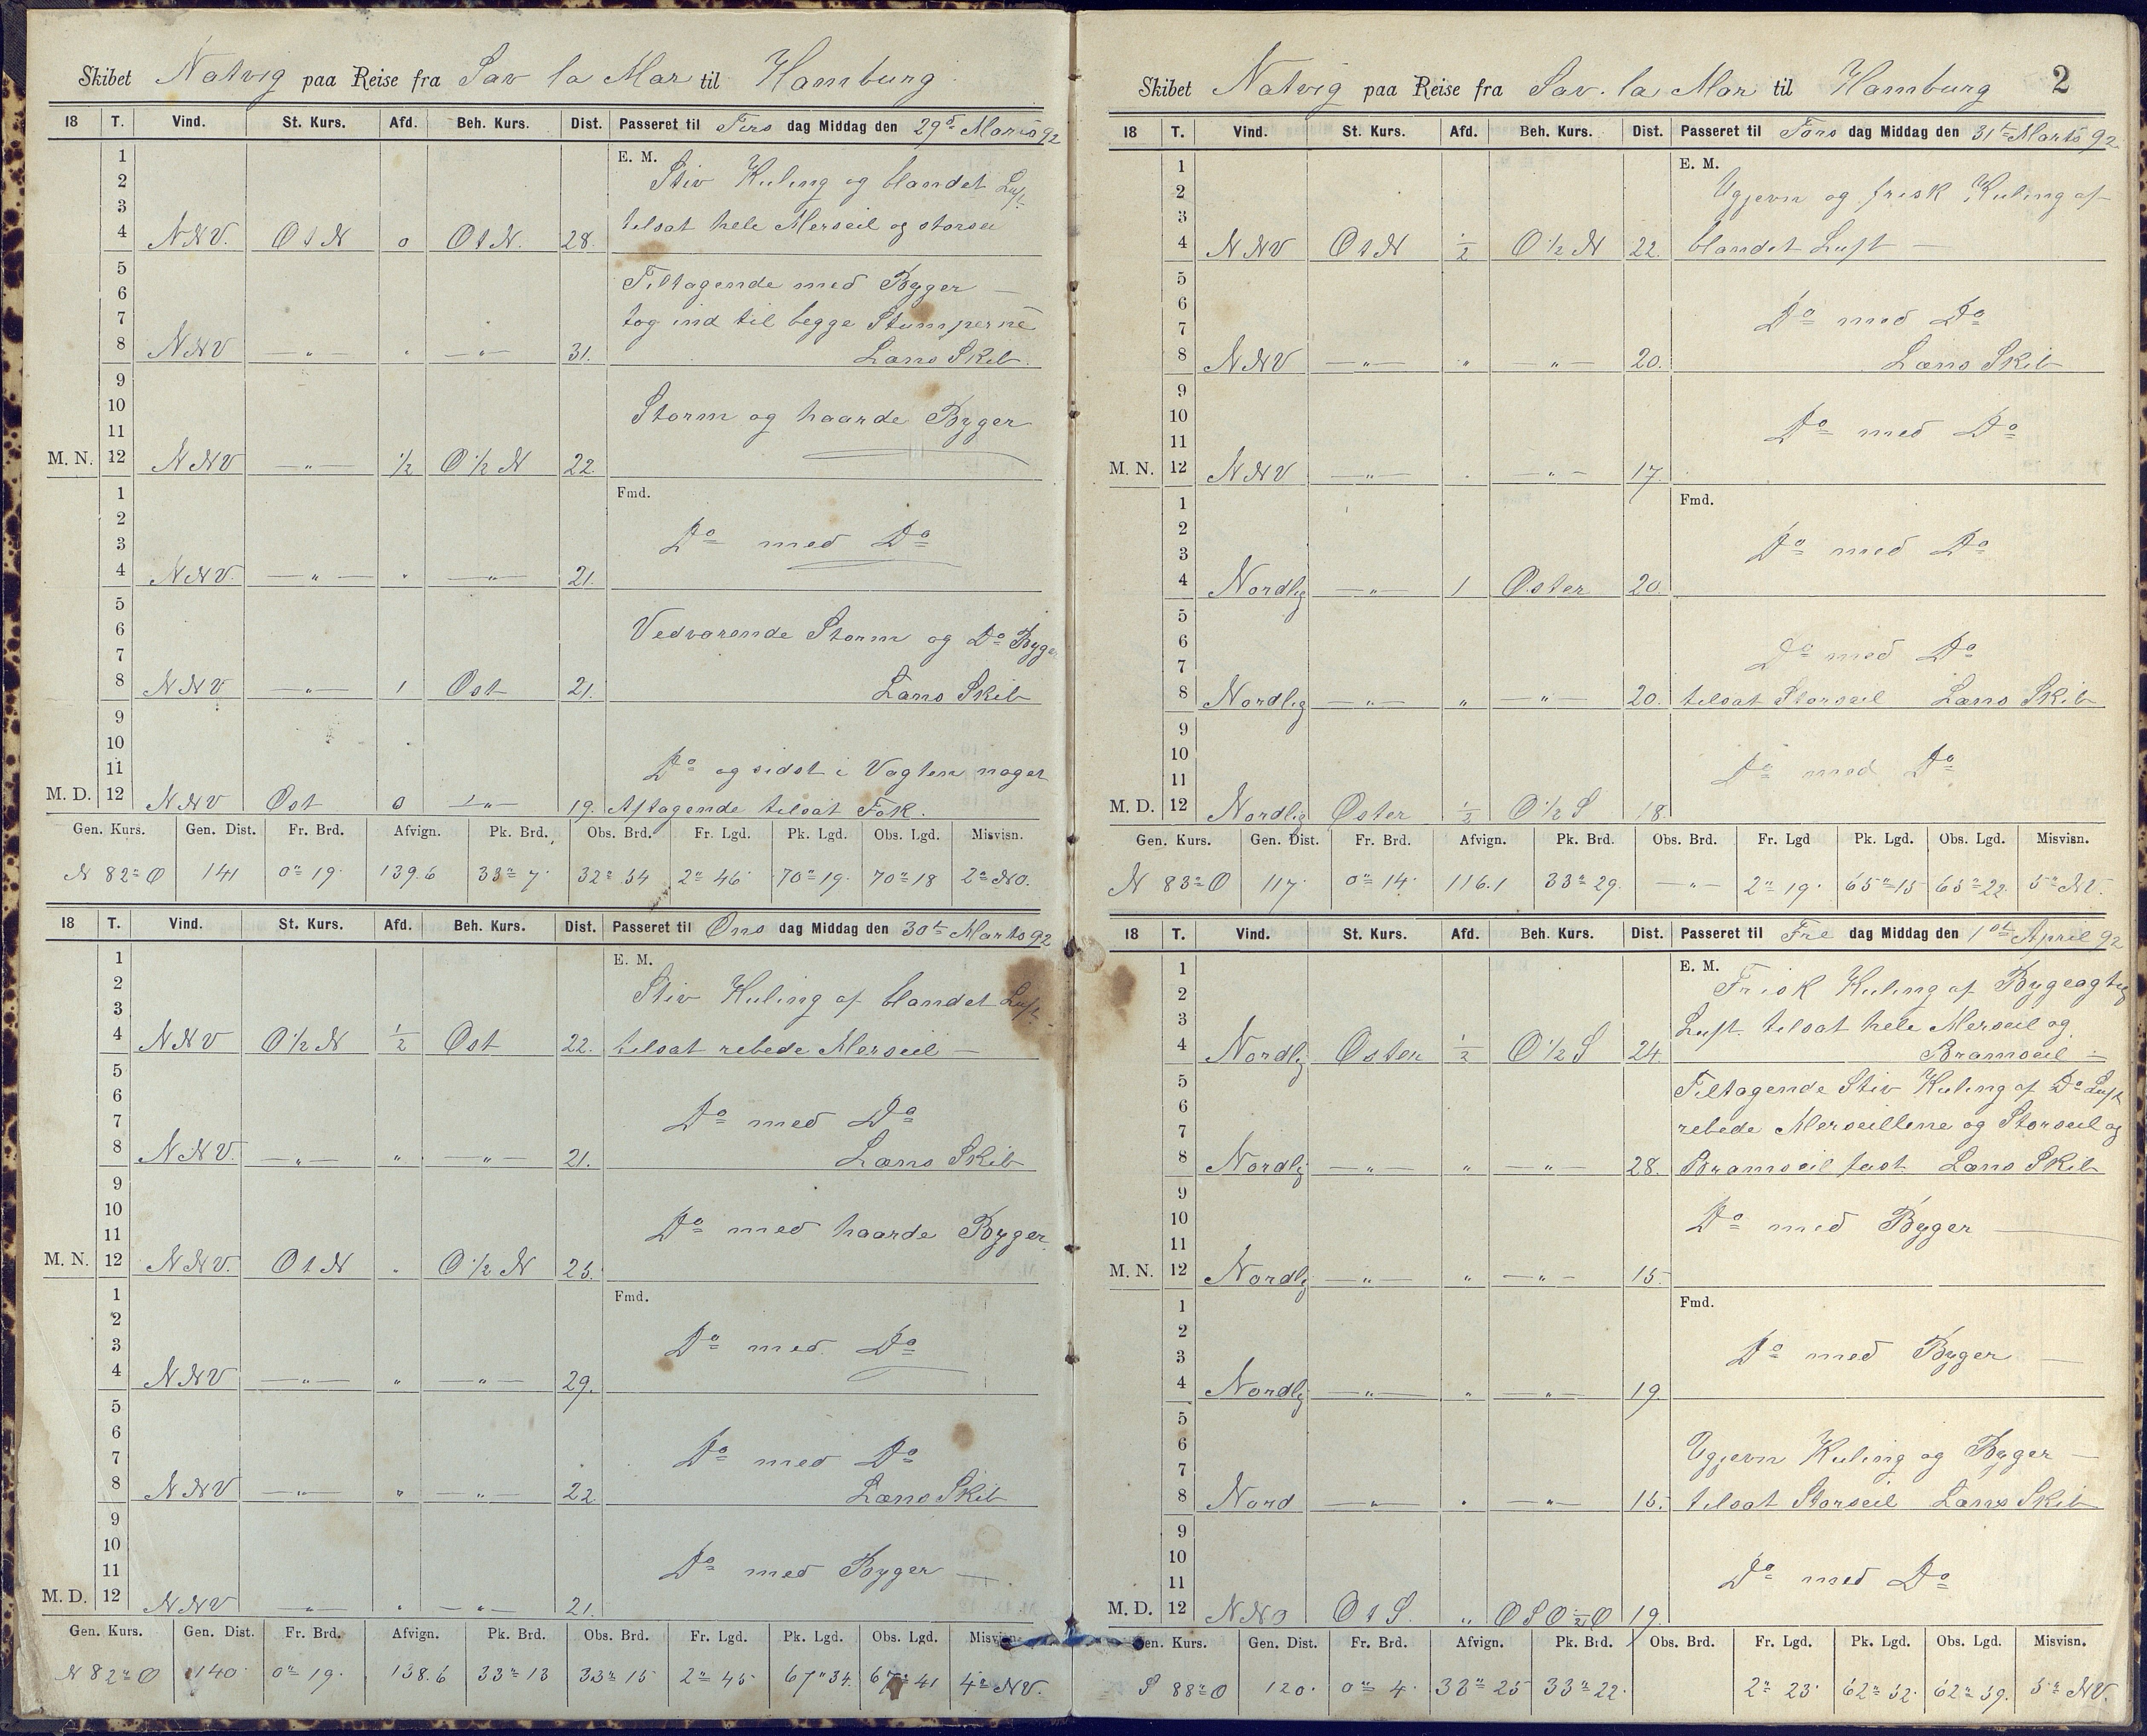 Skibet Natvig paa Reise fra Sav la Mar til Hamburg
18 T. Vind. St. Kurs. Afd. Beh. Kurs. Dist. Passeret til Tirs dag Middag den 29de Marts 92
1 E. M.
2 Stiv Kuling og blandet Luft
3 tilsat hele Merseil og storseil
4 NNV. O t N 0 O t N. 28.
5 Tiltagende med Byger —
6
7 tog ind til begge Stumperne
8 NNV —"— " —"— 31. Læns Skib.
9
10 Storm og haarde Byger
11
M. N. 12 NNV —"— 1/2 O 1/2 N 22.
1 Fmd.
2 Do med Do
3
4 NNV. —"— " —"— 21.
5
6 Vedvarende Storm og Do Byger
7
8 NNV —"— 1 Ost 21. Læns Skib
9
10
11 Do og sidst i Vagten noget
M. D. 12 NNV Ost 0 —"— 19. Aftagende tilsat Fok.
Gen. Kurs. Gen. Dist. Fr. Brd. Afvign. Pk. Brd. Obs. Brd. Fr. Lgd. Pk. Lgd. Obs. Lgd. Misvisn.
N 82° O 141 0° 19. 139.6 33° 7. 32° 54 2° 46 70° 19. 70° 18 2° NO.
18 T. Vind. St. Kurs. Afd. Beh. Kurs. Dist. Passeret til Ons dag Middag den 30te Marts 92
1 E. M.
2 Stiv Kuling af blandet Luft
3
4 NNV O 1/2 N 1/2 Ost 22. tilsat rebede Merseil —
5
6
7 Do med Do
8 NNV. —"— " —"— 21. Læns Skib
9
10 Do med haarde Byger
11
M. N. 12 NNV. O t N " O 1/2 N 25.
1 Fmd.
2
3 Do med Do
4 NNV —"— " —"— 29.
5
6
7 Do med Do
8 NNV —"— " —"— 22 Læns Skib
9
10
11 Do med Byger —
M. D. 12 NNV —"— " —"— 21.
Gen. Kurs. Gen. Dist. Fr. Brd. Afvign. Pk. Brd. Obs. Brd. Fr. Lgd. Pk. Lgd. Obs. Lgd. Misvisn.
N 82° O 140 0° 19. 138.6 33° 13 33° 15 2° 45 67° 34. 67° 41 4° NV.
Skibet Natvig paa Reise fra Sav. la Mar til Hamburg 2
18 T. Vind. St. Kurs. Afd. Beh. Kurs. Dist. Passeret til Tors dag Middag den 31te Marts 92.
1 E. M.
2 Ugjevn og frisk Kuling af
3
4 NNV O t N 1/2 O 1/2 N 22. blandet Luft —
5
6
7 Do med Do
8 NNV —"— " —"— 20. Læns Skib
9
10
11 Do med Do
M. N. 12 NNV —"— . —"— 17.
1 Fmd.
2
3 Do med Do
4 Nordlig —"— 1 Oster 20.
5
6
7 Do med Do
8 Nordlig —"— " —"— 20. tilsat Storseil Læns Skib
9
10
11 Do med Do
M. D. 12 Nordlig Oster 1/2 O 1/2 S 18.
Gen. Kurs. Gen. Dist. Fr. Brd. Afvign. Pk. Brd. Obs. Brd. Fr. Lgd Pk. Lgd. Obs. Lgd. Misvisn.
N 83° O 117. 0° 14. 116.1 33° 29. —"— 2° 19. 65° 15 65° 22. 5° NV.
18 T. Vind. St. Kurs. Afd. Beh. Kurs. Dist. Passeret til Fre dag Middag den 1ste April 92
1 E. M.
2 Frisk Kuling af Bygeagtig
3 Luft tilsat hele Merseil og
4 Nordlig Oster 1/2 O 1/2 S 24. Bramseil —
5 Tiltagende Stiv Kuling af Do Luft
6
7 rebede Merseillene og Storseil og
8 Nordlig —"— " —"— 28. Bramseil fast Læns Skib
9
10 Do med Byger —
11
M. N. 12 Nordlig —"— " —"— 15.
1 Fmd.
2
3 Do med Byger —
4 Nordlig —"— " —"— 19.
5
6 Ugjevn Kuling og Byger —
7
8 Nord —"— " —"— 15. tilsat Storseil Læns Skib
9
10
11 Do med Do
M. D. 12 NNO O t S. " OSO 1/2 O 19.
Gen. Kurs. Gen. Dist. Fr. Brd. Afvign. Pk. Brd. Obs. Brd. Fr. Lgd. Pk. Lgd. Obs. Lgd. Misvisn.
S 88° O 120. 0° 4. 33° 25 33° 22. 2° 23. 62° 52. 62° 59. 5° NV.